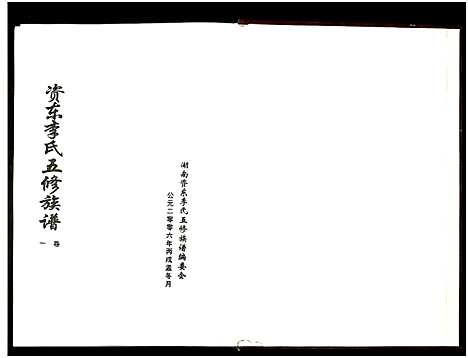 资东李氏五修族谱
卷一
湖南资东李氏五修族谱编委会
公元二零零六年丙戌孟冬月